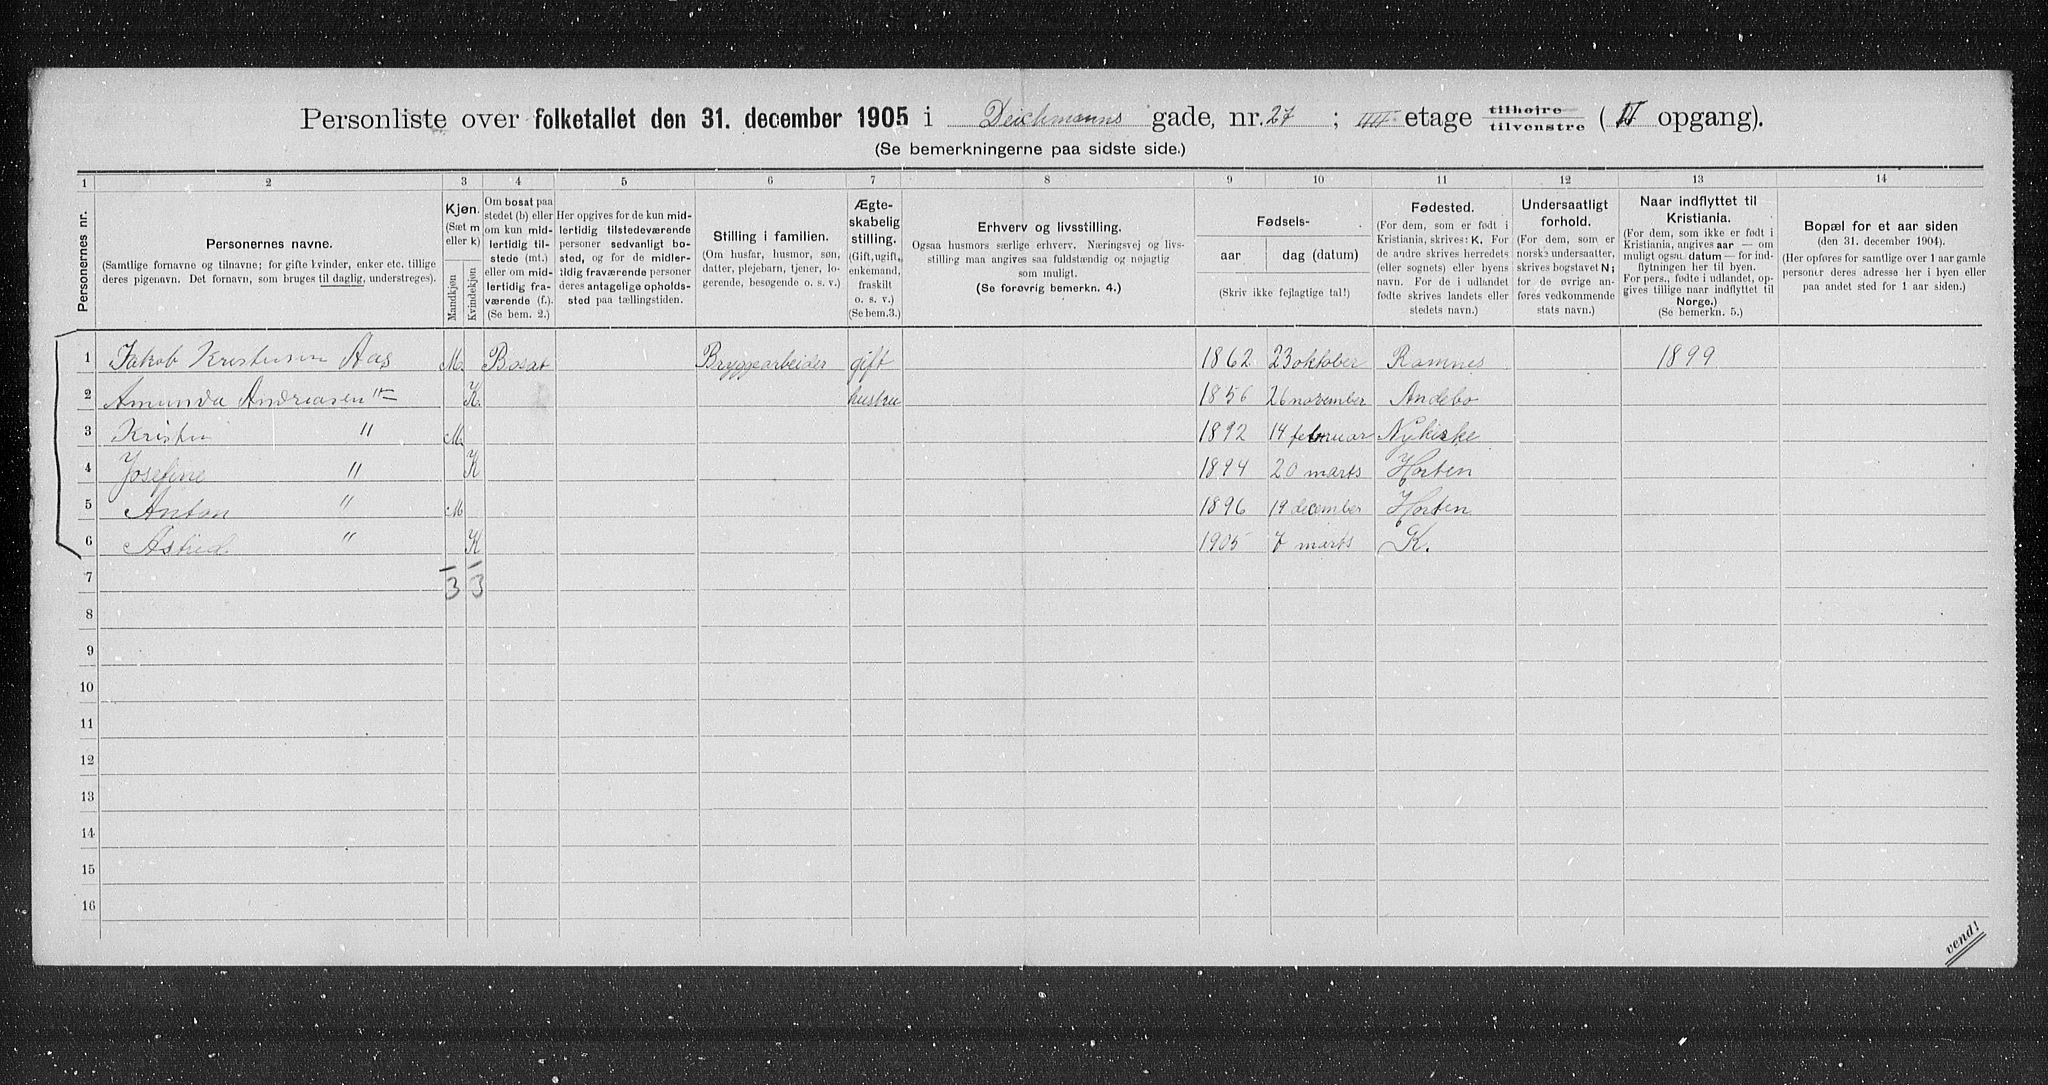 Personliste over folketallet den 31. december 1905 i Deichmanns gade, nr. 27 ; IIII etage tilhøjre tilvenstre ( II opgang).
(Se bemerkningerne paa sidste side.)
1 2 3 4 5 6 7 8 9 10 11 12 13 14
Personernes nr.
Personernes navne.
(Samtlige fornavne og tilnavne; for gifte kvinder, enker etc. tillige
deres pigenavn. Det fornavn, som bruges til daglig, understreges).
Kjøn.
(Sæt m
eller k)
Mandkjøn
Kvindekjøn
Om bosat paa
stedet (b) eller
om kun mid-
lertidig til-
stede (mt.)
eller om mid-
lertidig fra-
værende (f.).
(Se bem. 2.)
Her opgives for de kun mid-
lertidig tilstedeværende
personer sedvanligt bo-
sted, og for de midler-
tidig fraværende personer
deres antagelige opholds-
sted paa tællingstiden.
Stilling i familien.
(Om husfar, husmor, søn,
datter, plejebarn, tjener, lo-
gerende, besøgende o. s. v.)
Ægte-
skabelig
stilling.
(Gift, ugift,
enkemand,
fraskilt
o. s. v.)
(Se bem.3.)
Erhverv og livsstilling.
Ogsaa husmors særlige erhverv. Næringsvej og livs-
stilling maa angives saa fuldstændig og nøjagtig
som muligt.
(Se forøvrig bemerkn. 4.)
Fødsels-
aar
dag (datum)
(Skriv ikke fejlagtige tal!)
Fødested.
(For dem, som er født i
Kristiania, skrives: K. For
de andre skrives herredets
(eller sognets) eller byens
navn. For de i udlandet
fødte skrives landets eller
stedets navn.)
Undersaatligt
forhold.
(For dem, som er
norske undersaatter,
skrives bogstavet N;
for de øvrige an-
føres vedkommende
stats navn.)
Naar indflyttet til
Kristiania.
(For dem, som ikke er født i
Kristiania, angives aar — om
muligt ogsaa datum — for ind-
flytningen her til byen.
For pers., fødte i udlandet, op-
gives tillige naar indflyttet til
Norge.)
(Se bemerkn. 5.)
Bopæl for et aar siden
(den 31. december 1904).
(Her opføres for samtlige over 1 aar gamle
personer deres adresse her i byen eller
paa andet sted for 1 aar siden.)
1 Jakob Kristensen Aas M. Bosat Bryggearbeider gift 1862 23 oktober Ramnes 1899
2 Amunda Andreasen " K. hustru 1856 26 november Andebo
3 Kristen " M. 1892 14 februar Nykirke
4 Josefine " K 1894 20 marts Horten
5 Anton " M 1896 19 december Horten
6 Astrid " K 1905 7 marts K.
7 3 3
8
9
10
11
12
13
14
15
16
vend!